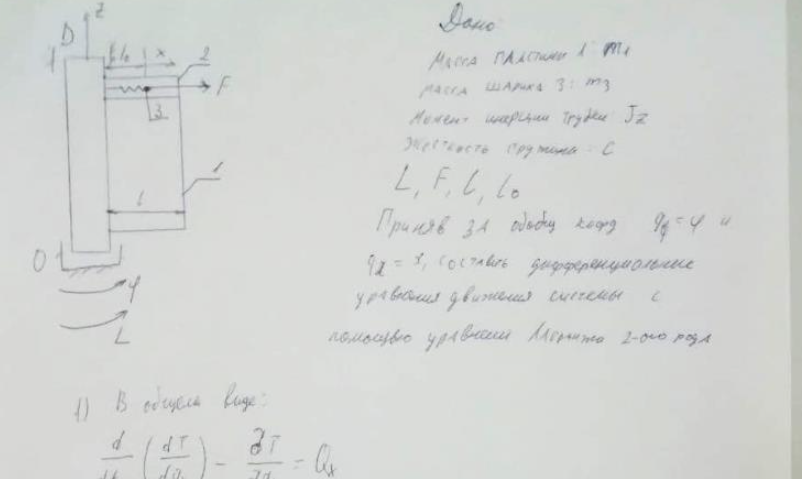 Дано:
Масса пластины 1: m1
масса шарика 3: m3
Момент инерции трубки Jz
Жесткость пружины: c
L, F, l, l0
Приняв за обобщ коорд qφ = φ и
qx = x, составить дифференциальные
уравнения движения системы с
помощью уравнений 2-ого рода
z
D
l0 x 2
F
3
1
l
O
φ
L
1) В общем виде:
d/dt (dT/dq) - ∂T/∂q = Qx